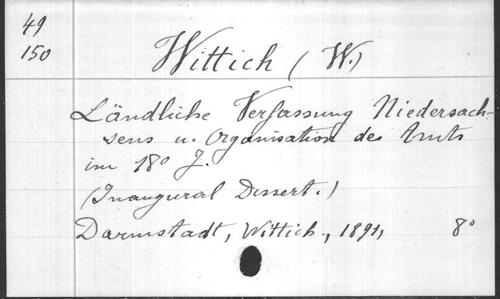 49
150
Wittich (W.)
Ländliche Verfassung Niedersach-
sens u. Organisation des Amts
im 18º J.
(Inaugural Dissert.)
Darmstadt, Wittich., 1891, 8º